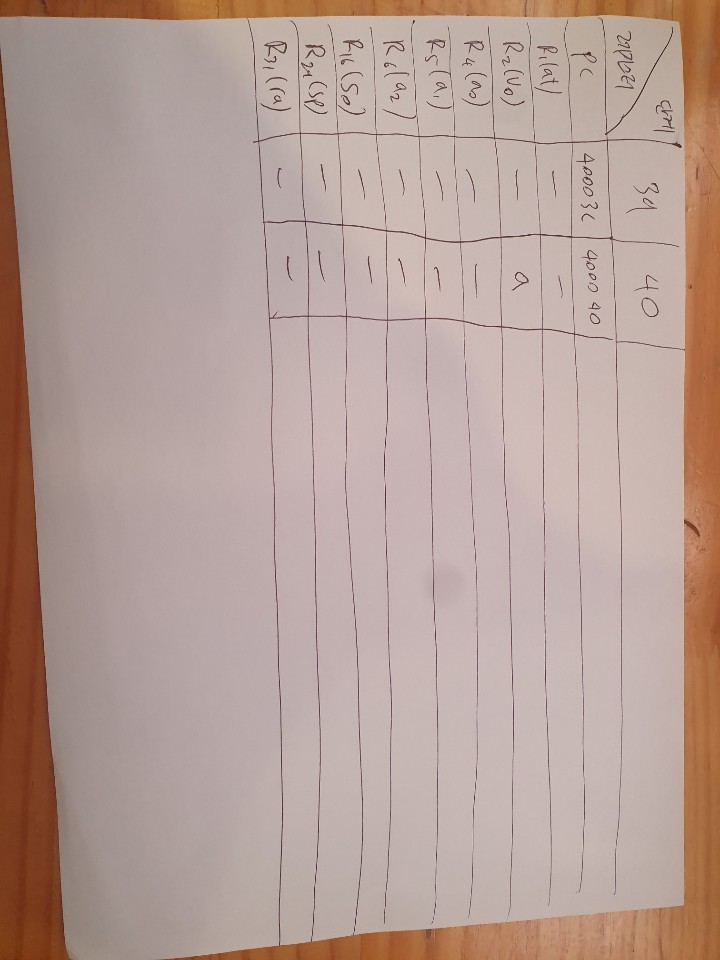 39 40
PC 40003c 400040
R1(at) — —
R2(v0) — a
R4(a0) — —
R5(a1) — —
R6(a2) — —
R16(s0) — —
R29(sp) — —
R31(ra) — —